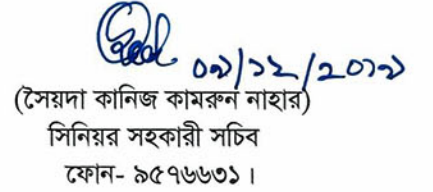 ০৯/১২/২০১৯
(সৈয়দা কানিজ কামরুন নাহার)
সিনিয়র সহকারী সচিব
ফোন- ৯৫৭৬৬৩১।